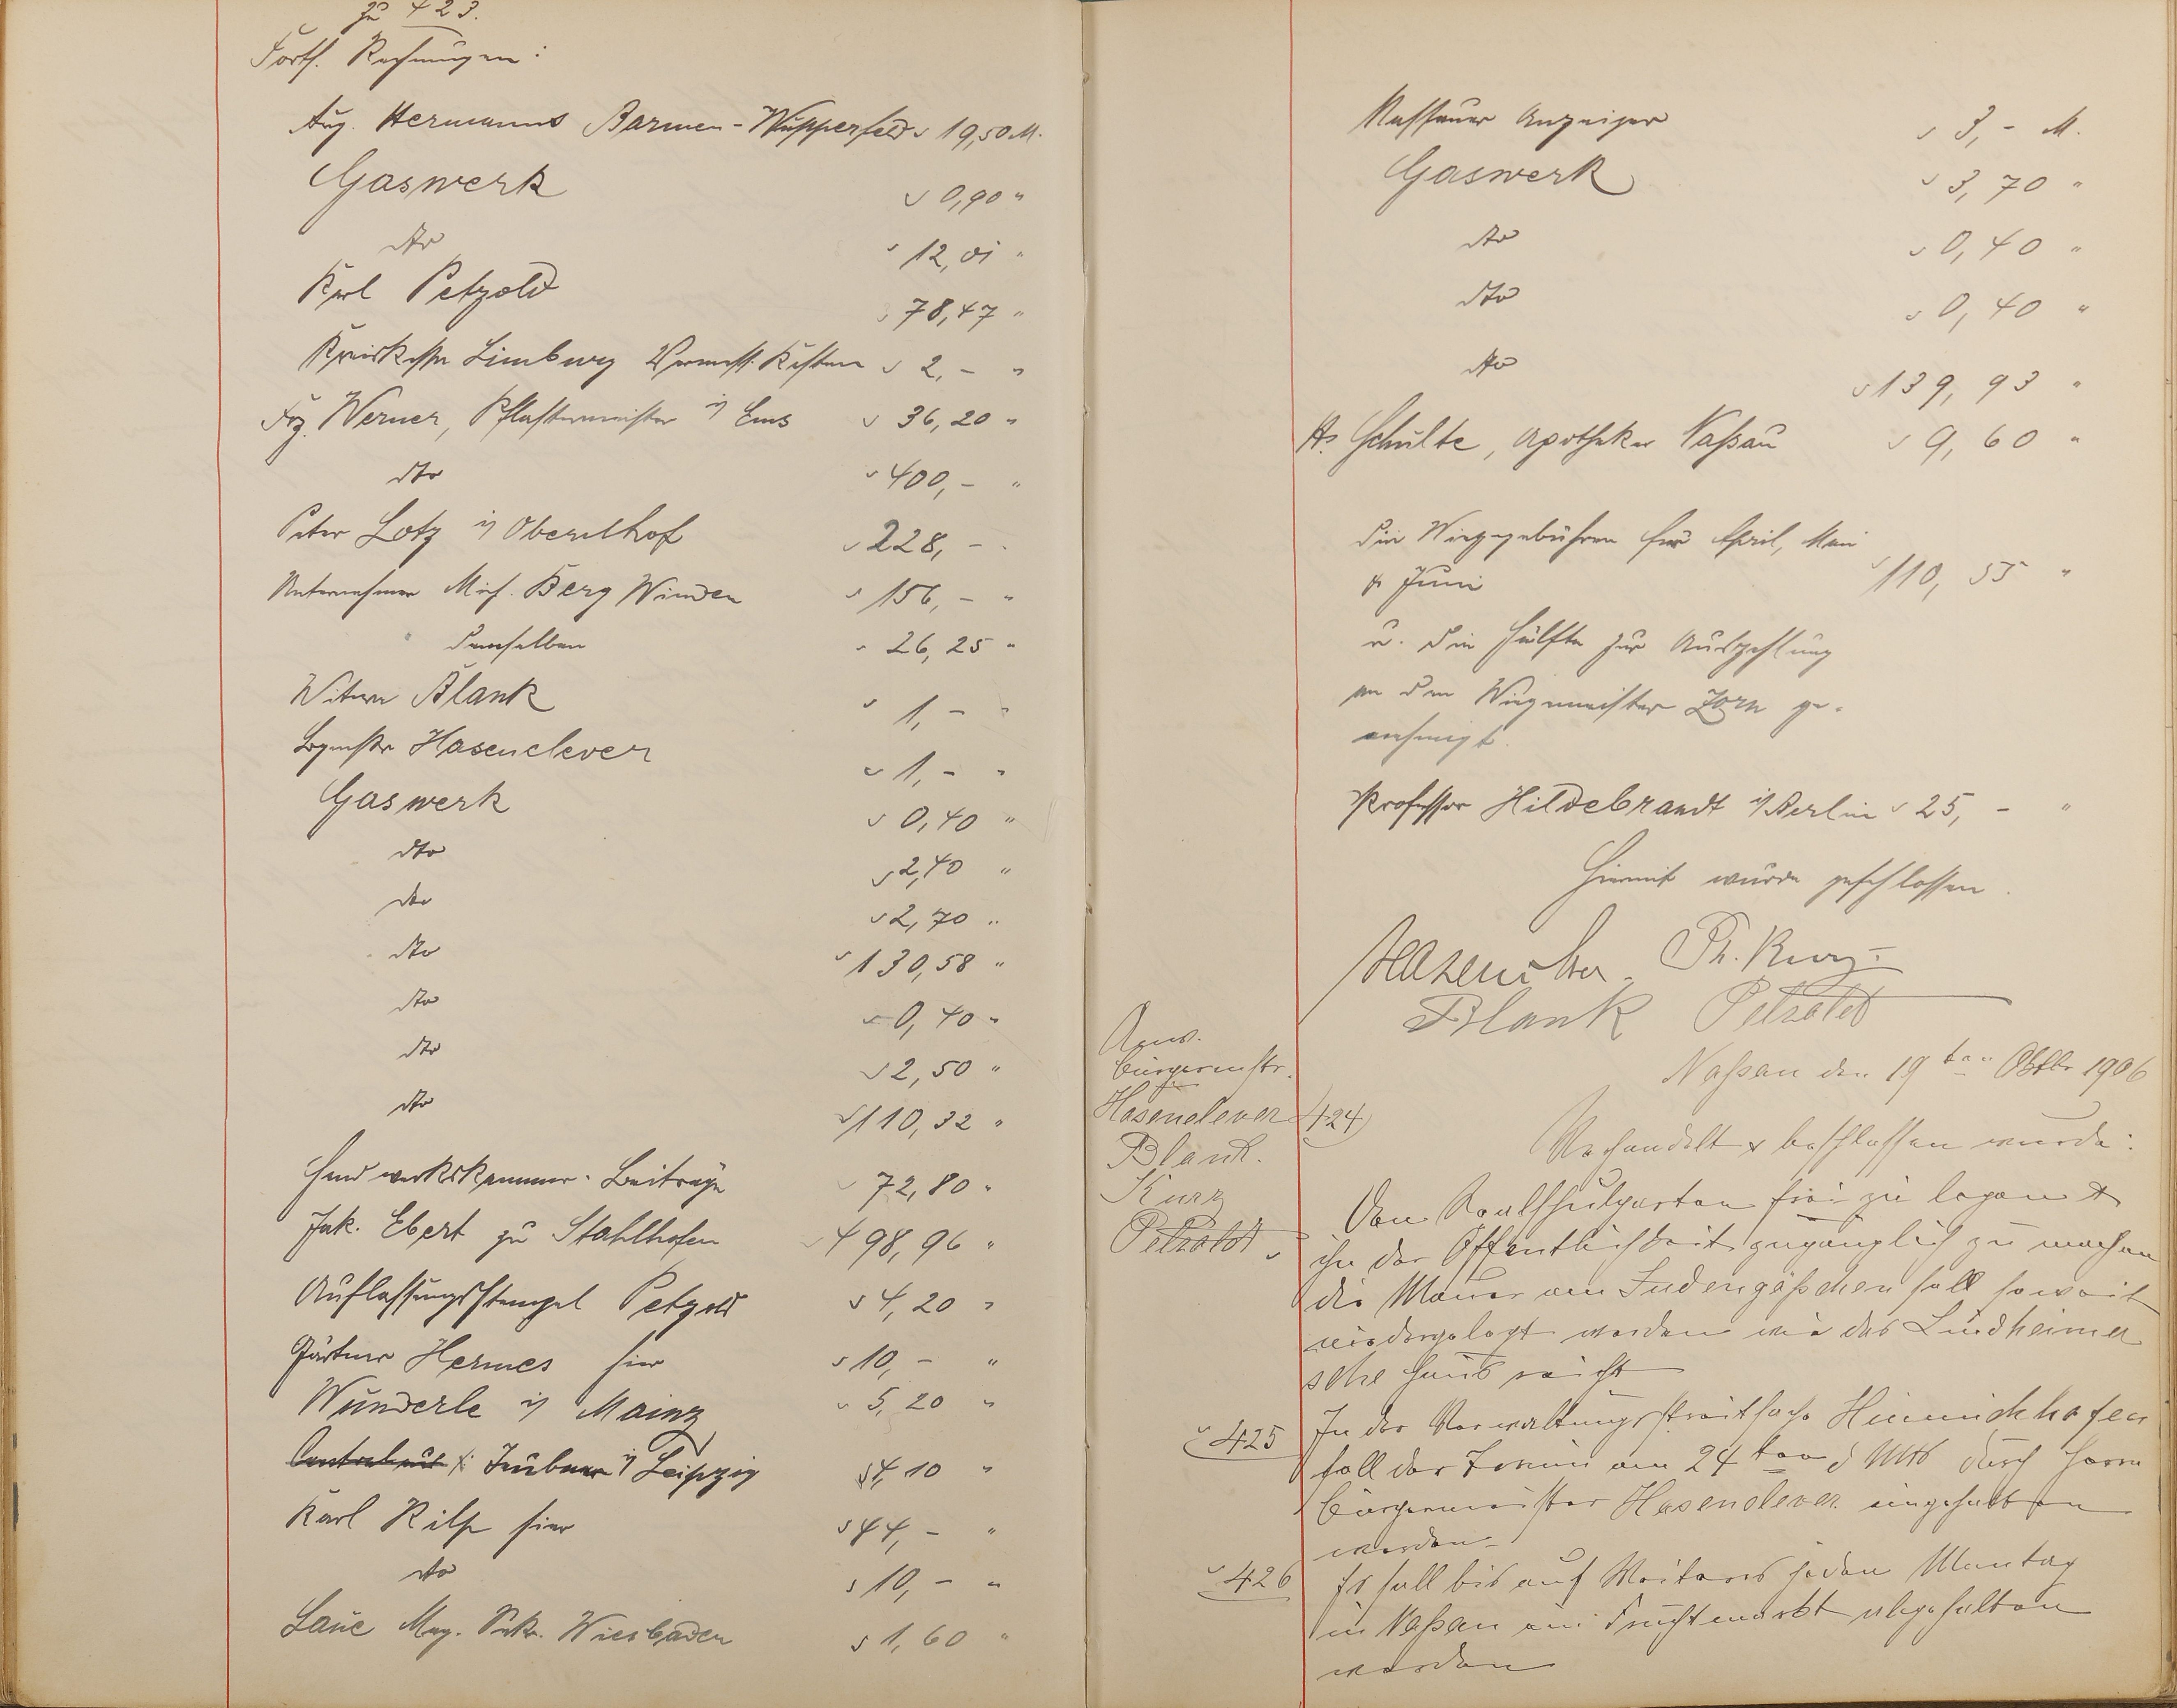 zu 423.
Forts. Rechnungen:
Aug. Hermanns Barmen-Wupperfeld 19,50 M.
Gaswerk 0,90 "
dto 12,01 "
Karl Petzold 78,47 "
Kreiskasse Limburg Vermess. Kosten 2,- "
Frz. Werner, Pflastermeister i/ Ems 36,20 "
dto 400,- "
Peter Lotz i/ Oberelhof 228,- "
Unternehmer Mich. Berg Winden 156,- "
demselben 26,25 "
Witwe Blank 1,- "
Bürgermstr Hasenclever 1,- "
Gaswerk 0,40 "
dto 2,40 "
dto 2,70 "
dto 130,58 "
dto 0,40 "
dto 2,50 "
dto 110,32 "
Handwerkskammer-Beiträge 72,80 "
Jak. Ebert zu Stahlhofen 498,96 "
Auflassungsstempel Petzold 4,20 "
Gärtner Hermes hier 10,- "
Wunderle i/ Mainz 5,20 "
i/ Leipzig 4,10 "
Karl Rilp hier 44,- "
dto 10,- "
Laue Mag. Sekr. Wiesbaden 1,60 "
Nassauer Anzeiger 3,- M.
Gaswerk 3,70 "
dto 0,40 "
dto 0,40 "
dto 139,93 "
A. Schulte, Apotheker Naßau 9,60 "
Die Wiegegebühren für April, Mai
& Juni 110,55 "
u. die Hälfte zur Auszahlung
an den Wiegemeister Zorn ge-
nehmigt.
Professor Hildebrandt i/ Berlin 25,- "
Hiermit wurde geschlossen.
Hasenclever Ph. Kurz
Blank Petzold
Naßau den 19ten Oktbr 1906
Anw.
Bürgermstr.
Hasenclever
Blank.
Kurz
Petzold
424
Verhandelt & beschlossen wurde:
Den Realschulgarten frei zu legen &
ihn der Öffentlichkeit zugänglich zu machen
die Mauer am Judengäßchen soll soweit
niedergelegt werden wie das Lindheimer
sche Haus reicht
425 In der Verwaltungsstreitsache Heinrichhofen
soll der Termin am 24ten d Mts durch Herrn
Bürgermeister Hasenclever eingehalten
werden.
426 Es soll bis auf Weiteres jeden Montag
in Naßau ein Fruchtmarkt abgehalten
werden